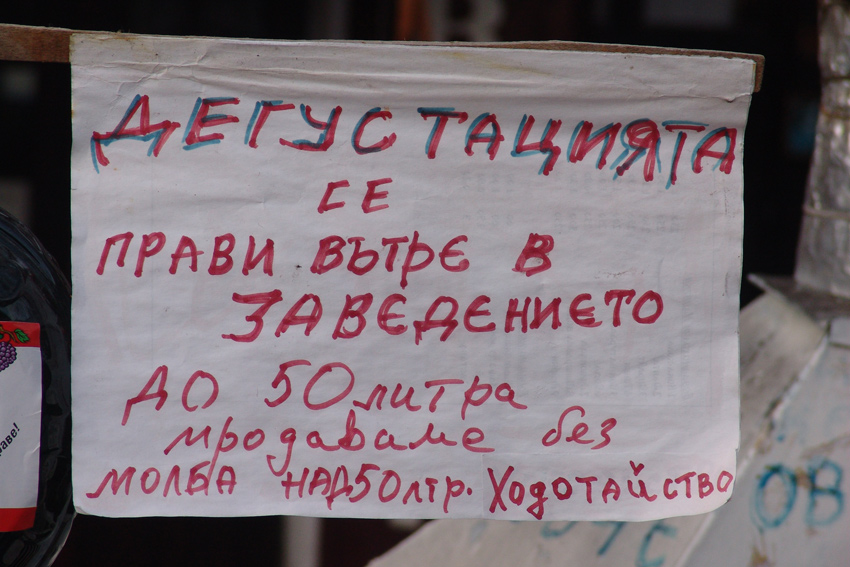 ДЕГУСТАЦИЯТА
СЕ
ПРАВИ ВЪТРЕ В
ЗАВЕДЕНИЕТО
ДО 50 литра
продаваме без
МОЛБА НАД 50 лтр. Ходотайство
ОВ